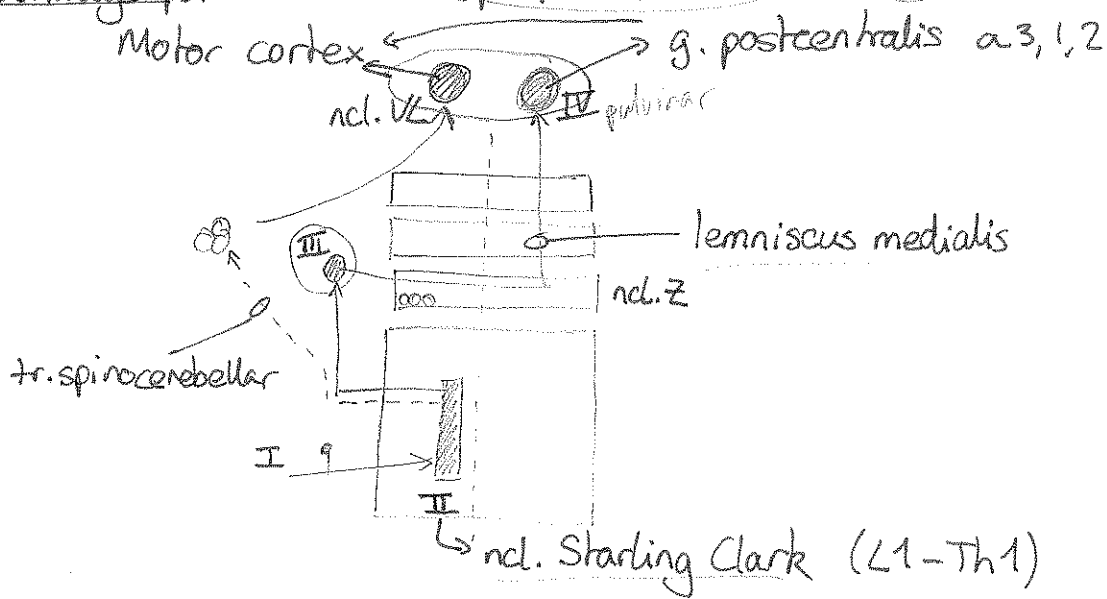 Motor cortex
g. postcentralis a 3, 1, 2
ncl. VL
IV pulvinar
III
lemniscus medialis
ncl. Z
tr. spinocerebellar
I
II
ncl. Starling Clark (L1-Th1)